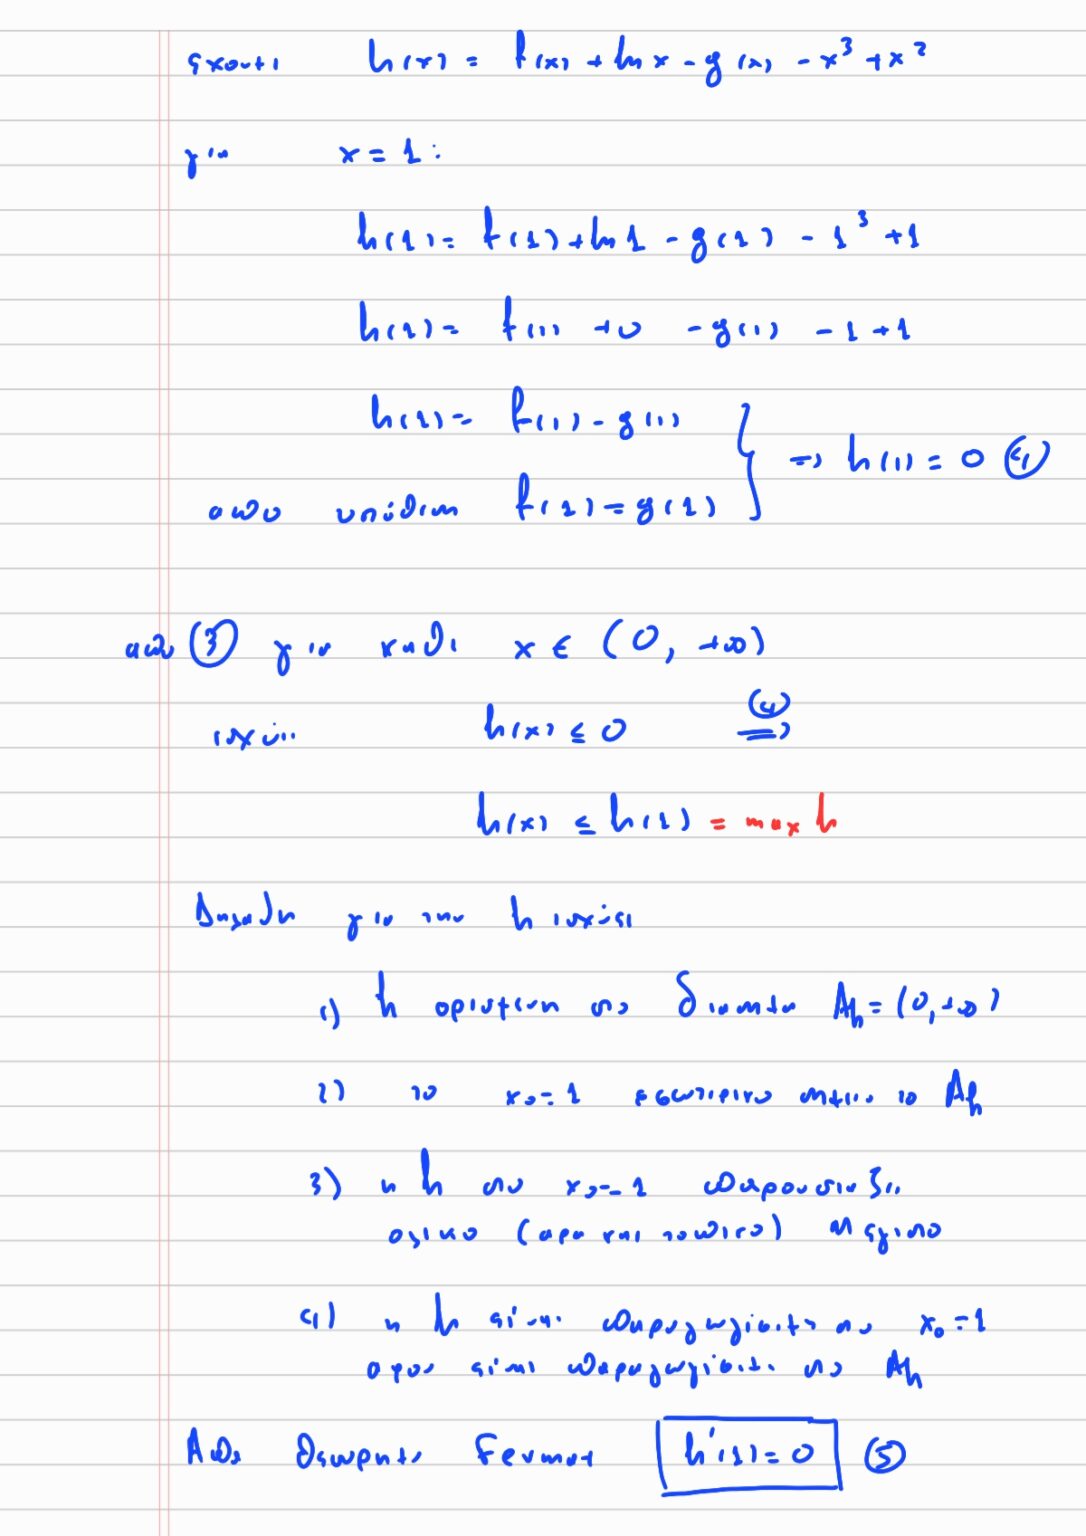 εχουμε h(x) = f(x) + ln x - g(x) - x³ + x²
για x = 1 :
h(1) = f(1) + ln 1 - g(1) - 1³ + 1
h(1) = f(1) + 0 - g(1) - 1 + 1
h(1) = f(1) - g(1)
⇒ h(1) = 0 ④
απο υπόθεση f(1) = g(1)
απο ③ για καθε x ∈ (0, +∞)
ισχύει h(x) ≤ 0 ⟹ (4)
h(x) ≤ h(1) = max h
Δηλαδη για την h ισχύει
1) h ορισμενη στο διαστημα Ah = (0, +∞)
2) το x₀ = 1 εσωτερικο σημειο το Ah
3) η h στο x₀ = 1 παρουσιαζει
ολικο (αρα και τοπικο) μεγιστο
4) η h είναι παραγωγίσιμη στο x₀ = 1
αφου είναι παραγωγίσιμη στο Ah
Απο θεωρημα Fermat h'(1) = 0 ⑤